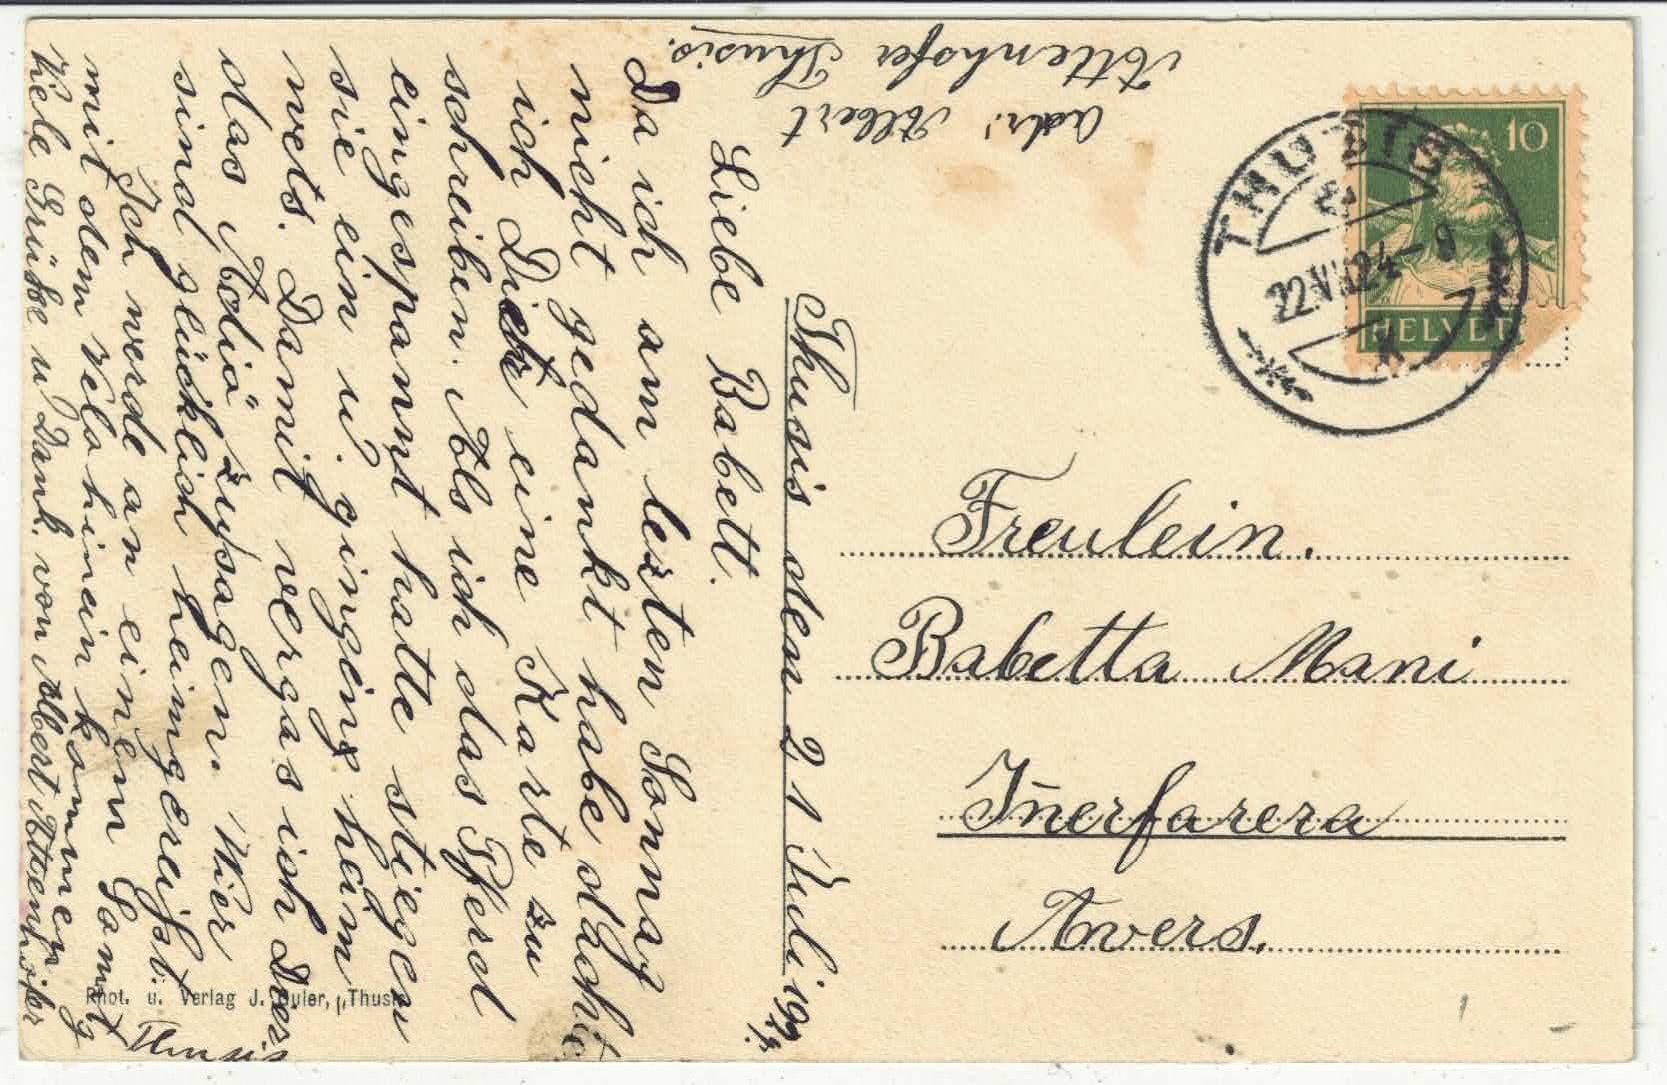 Thusis den 21 Juli 1924
Liebe Babett.
Da ich am lezten Sonnag
nicht gedankt habe dachte
ich Dier eine Karte zu
schreiben. Als ich das Pferd
eingespannt hatte stiegen
sie ein u. gingen heim
wets. Damit vergas ich Dier
das Adiö zusagen. Wier
sind glücklich heimgereist.
Ich werde an einem Somt
mit dem Velo hinein kommen
Viele Grüsse u Dank. von Albert Attenhofer
Thusis
adr: Albert
Attenhofer Thusis.
Freulein.
Babetta Mani
Iñerfarera
Avers.
THUSIS
22.VII.24-9
10
HELVETIA
Phot. u. Verlag J. Guler, Thusis